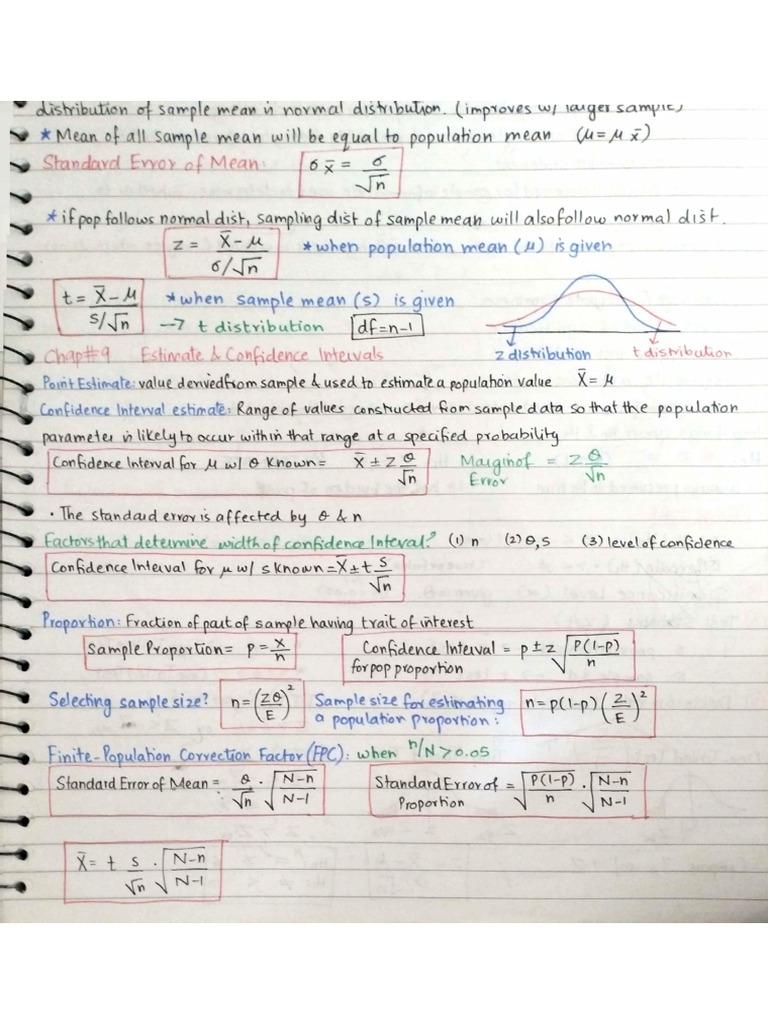 distribution of sample mean is normal distribution. (improves w/ larger sample)
* Mean of all sample mean will be equal to population mean (μ = μ x̄)
Standard Error of Mean: σ x̄ = σ/√n
* if pop follows normal dist, sampling dist of sample mean will also follow normal dist.
z = X̄-μ / σ/√n * when population mean (μ) is given
t = X̄-μ / s/√n * when sample mean (s) is given
→ t distribution df=n-1
z distribution t distribution
Chap#9 Estimate & Confidence Intervals
Point Estimate: value derived from sample & used to estimate a population value X̄ = μ
Confidence Interval estimate: Range of values constructed from sample data so that the population
parameter is likely to occur within that range at a specified probability
Confidence Interval for μ w/ θ known = X̄ ± z θ/√n Margin of Error = z θ/√n
· The standard error is affected by θ & n
Factors that determine width of confidence Interval? (1) n (2) θ, s (3) level of confidence
Confidence Interval for μ w/ s known = X̄ ± t s/√n
Proportion: Fraction of part of sample having trait of interest
Sample Proportion = p = x/n Confidence Interval for pop proportion = p ± z √(P(1-p)/n)
Selecting sample size? n = (zθ/E)² Sample size for estimating a population proportion: n = p(1-p)(z/E)²
Finite-Population Correction Factor (FPC): when n/N > 0.05
Standard Error of Mean = θ/√n · √(N-n/N-1) Standard Error of Proportion = √(P(1-p)/n) · √(N-n/N-1)
X̄ = t s/√n · √(N-n/N-1)